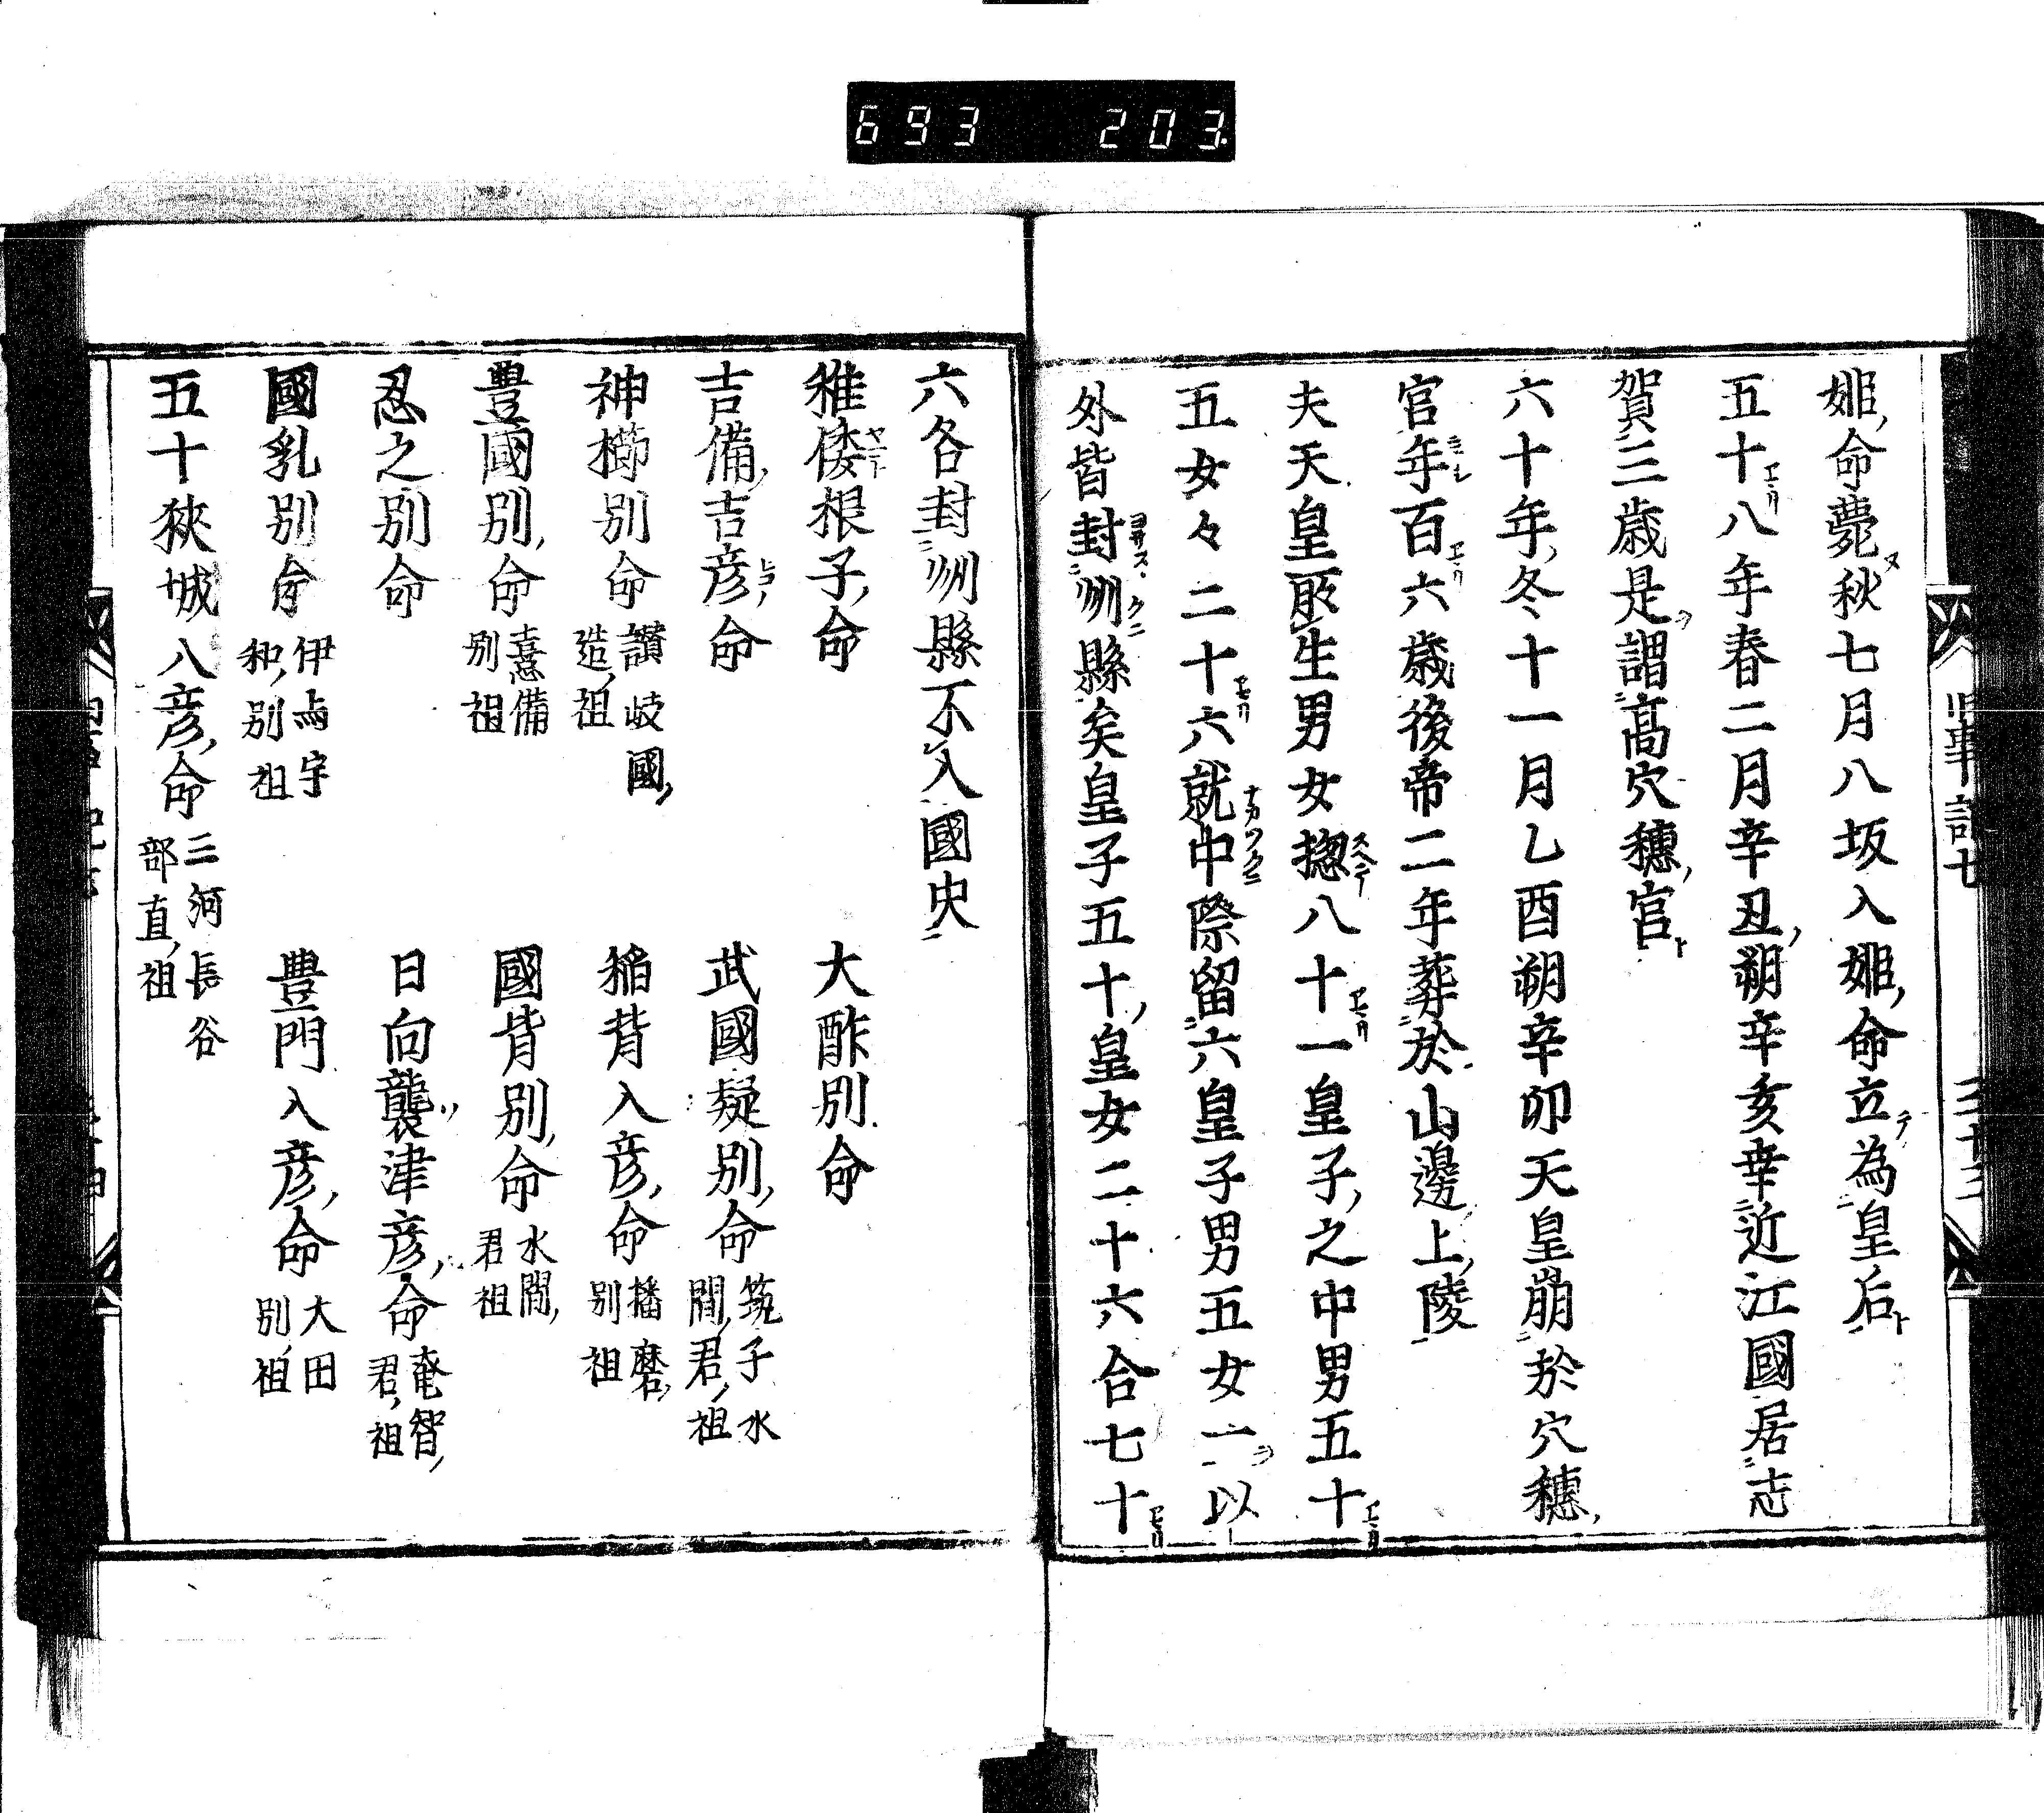 693 203
姫命薨秋七月八坂入姫命立為皇后
五十八年春二月辛丑朔辛亥幸近江國居志
賀三歳是謂髙穴穗宮
六十年冬十一月乙酉朔辛卯天皇崩於穴穗
宮年百六歳後帝二年葬於山邊上陵
夫天皇所生男女揔八十一皇子之中男五十
五女々二十六就中際留六皇子男五女一以
外皆封州縣矣皇子五十皇女二十六合七十
六各封州縣不入國史
稚倭根子命 大酢別命
吉備吉彦命 武國疑別命 筑子水間君祖
神櫛別命 讃岐國造祖 稲背入彦命 播磨別祖
豊國別命 憙備別祖 國背別命 水間君祖
忍之別命 日向襲津彦命 奄智君祖
國乳別命 伊与宇和別祖 豊門入彦命 大田別祖
五十狹城入彦命 三河長谷部直祖